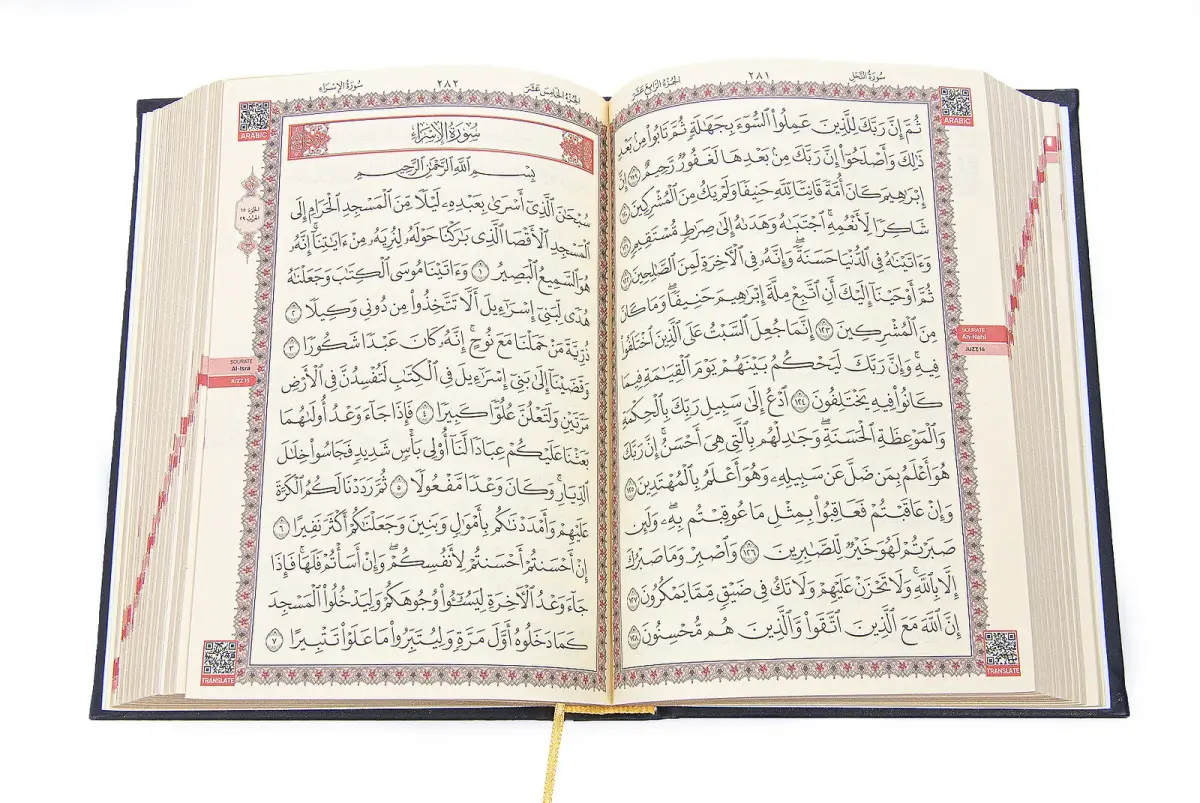 سُورَةُ النَّحْلِ
٢٨١
الجُزْءُ الرَّابِعَ عَشَرَ
ARABIC
ثُمَّ إِنَّ رَبَّكَ لِلَّذِينَ عَمِلُوا۟ ٱلسُّوٓءَ بِجَهَـٰلَةٍ ثُمَّ تَابُوا۟ مِنۢ بَعْدِ
ذَٰلِكَ وَأَصْلَحُوٓا۟ إِنَّ رَبَّكَ مِنۢ بَعْدِهَا لَغَفُورٌ رَّحِيمٌ ١١٩ إِنَّ
إِبْرَٰهِيمَ كَانَ أُمَّةً قَانِتًا لِّلَّهِ حَنِيفًا وَلَمْ يَكُ مِنَ ٱلْمُشْرِكِينَ ١٢٠
شَاكِرًا لِّأَنْعُمِهِ ۚ ٱجْتَبَىٰهُ وَهَدَىٰهُ إِلَىٰ صِرَٰطٍ مُّسْتَقِيمٍ ١٢١
وَءَاتَيْنَـٰهُ فِى ٱلدُّنْيَا حَسَنَةً ۖ وَإِنَّهُۥ فِى ٱلْـَٔاخِرَةِ لَمِنَ ٱلصَّـٰلِحِينَ ١٢٢
ثُمَّ أَوْحَيْنَآ إِلَيْكَ أَنِ ٱتَّبِعْ مِلَّةَ إِبْرَٰهِيمَ حَنِيفًا ۖ وَمَا كَانَ
مِنَ ٱلْمُشْرِكِينَ ١٢٣ إِنَّمَا جُعِلَ ٱلسَّبْتُ عَلَى ٱلَّذِينَ ٱخْتَلَفُوا۟
فِيهِ ۚ وَإِنَّ رَبَّكَ لَيَحْكُمُ بَيْنَهُمْ يَوْمَ ٱلْقِيَـٰمَةِ فِيمَا
كَانُوا۟ فِيهِ يَخْتَلِفُونَ ١٢٤ ٱدْعُ إِلَىٰ سَبِيلِ رَبِّكَ بِٱلْحِكْمَةِ
وَٱلْمَوْعِظَةِ ٱلْحَسَنَةِ ۖ وَجَـٰدِلْهُم بِٱلَّتِى هِىَ أَحْسَنُ ۚ إِنَّ رَبَّكَ
هُوَ أَعْلَمُ بِمَن ضَلَّ عَن سَبِيلِهِۦ ۖ وَهُوَ أَعْلَمُ بِٱلْمُهْتَدِينَ ١٢٥
وَإِنْ عَاقَبْتُمْ فَعَاقِبُوا۟ بِمِثْلِ مَا عُوقِبْتُم بِهِۦ ۖ وَلَئِن
صَبَرْتُمْ لَهُوَ خَيْرٌ لِّلصَّـٰبِرِينَ ١٢٦ وَٱصْبِرْ وَمَا صَبْرُكَ
إِلَّا بِٱللَّهِ ۚ وَلَا تَحْزَنْ عَلَيْهِمْ وَلَا تَكُ فِى ضَيْقٍ مِّمَّا يَمْكُرُونَ ١٢٧
إِنَّ ٱللَّهَ مَعَ ٱلَّذِينَ ٱتَّقَوا۟ وَّٱلَّذِينَ هُم مُّحْسِنُونَ ١٢٨
SOURATE
An-Nahl
JUZZ 14
TRANSLATE
سُورَةُ الإِسْرَاءِ
٢٨٢
الجُزْءُ الخَامِسَ عَشَرَ
ARABIC
سُورَةُ الإِسْرَاءِ
بِسْمِ ٱللَّهِ ٱلرَّحْمَـٰنِ ٱلرَّحِيمِ
سُبْحَـٰنَ ٱلَّذِىٓ أَسْرَىٰ بِعَبْدِهِۦ لَيْلًا مِّنَ ٱلْمَسْجِدِ ٱلْحَرَامِ إِلَى
ٱلْمَسْجِدِ ٱلْأَقْصَا ٱلَّذِى بَـٰرَكْنَا حَوْلَهُۥ لِنُرِيَهُۥ مِنْ ءَايَـٰتِنَآ ۚ إِنَّهُۥ
هُوَ ٱلسَّمِيعُ ٱلْبَصِيرُ ١ وَءَاتَيْنَا مُوسَى ٱلْكِتَـٰبَ وَجَعَلْنَـٰهُ
هُدًى لِّبَنِىٓ إِسْرَٰٓءِيلَ أَلَّا تَتَّخِذُوا۟ مِن دُونِى وَكِيلًا ٢
ذُرِّيَّةَ مَنْ حَمَلْنَا مَعَ نُوحٍ ۚ إِنَّهُۥ كَانَ عَبْدًا شَكُورًا ٣
وَقَضَيْنَآ إِلَىٰ بَنِىٓ إِسْرَٰٓءِيلَ فِى ٱلْكِتَـٰبِ لَتُفْسِدُنَّ فِى ٱلْأَرْضِ
مَرَّتَيْنِ وَلَتَعْلُنَّ عُلُوًّا كَبِيرًا ٤ فَإِذَا جَآءَ وَعْدُ أُولَىٰهُمَا
بَعَثْنَا عَلَيْكُمْ عِبَادًا لَّنَآ أُو۟لِى بَأْسٍ شَدِيدٍ فَجَاسُوا۟ خِلَـٰلَ
ٱلدِّيَارِ ۚ وَكَانَ وَعْدًا مَّفْعُولًا ٥ ثُمَّ رَدَدْنَا لَكُمُ ٱلْكَرَّةَ
عَلَيْهِمْ وَأَمْدَدْنَـٰكُم بِأَمْوَٰلٍ وَبَنِينَ وَجَعَلْنَـٰكُمْ أَكْثَرَ نَفِيرًا ٦
إِنْ أَحْسَنتُمْ أَحْسَنتُمْ لِأَنفُسِكُمْ ۖ وَإِنْ أَسَأْتُمْ فَلَهَا ۚ فَإِذَا
جَآءَ وَعْدُ ٱلْـَٔاخِرَةِ لِيَسُـۥٓـُٔوا۟ وُجُوهَكُمْ وَلِيَدْخُلُوا۟ ٱلْمَسْجِدَ
كَمَا دَخَلُوهُ أَوَّلَ مَرَّةٍ وَلِيُتَبِّرُوا۟ مَا عَلَوْا۟ تَتْبِيرًا ٧
الجُزْءُ ١٥
الحِزْبُ ٢٩
SOURATE
Al-Isra
JUZZ 15
TRANSLATE